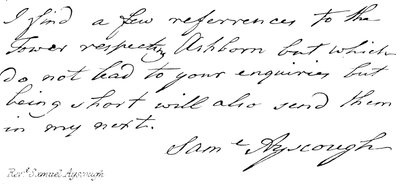 I find a few referrences to the
Tower respecting Ashborn but which
do not lead to your enquiries but
being short will also send them
in my next.
Sam.l Ayscough
Rev.d Samuel Ayscough